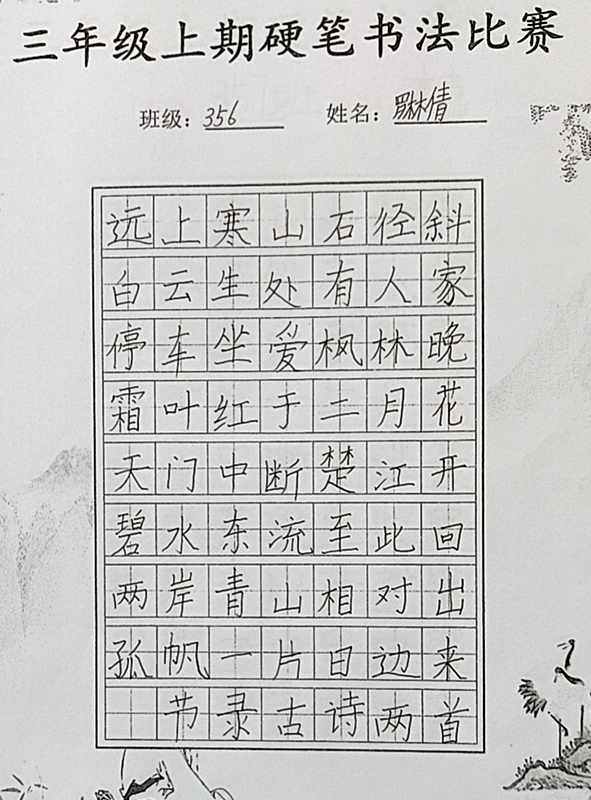 三年级上期硬笔书法比赛
班级：356 姓名：罗林倩
远上寒山石径斜
白云生处有人家
停车坐爱枫林晚
霜叶红于二月花
天门中断楚江开
碧水东流至此回
两岸青山相对出
孤帆一片日边来
节录古诗两首